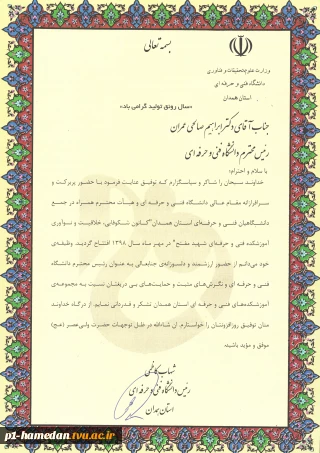 بسمه تعالی
وزارت علوم تحقیقات و فناوری
دانشگاه فنی و حرفه ای
استان همدان
«سال رونق تولید گرامی باد»
جناب آقای دکتر ابراهیم صالحی عمران
رئیس محترم دانشگاه فنی و حرفه ای
با سلام و احترام؛
خداوند سبحان را شاکر و سپاسگزارم که توفیق عنایت فرمود با حضور پربرکت و
سرافرازانه مقام عالی دانشگاه فنی و حرفه ای و هیأت محترم همراه در جمع
دانشگاهیان فنی و حرفه‌ای استان همدان"کانون شکوفایی، خلاقیت و نوآوری
آموزشکده فنی و حرفه‌ای شهید مفتح" در مهر ماه سال ۱۳۹۸ افتتاح گردید. وظیفه‌ی
خود می‌دانم از حضور ارزشمند و دلسوزانه‌ی جنابعالی به عنوان رئیس محترم دانشگاه
فنی و حرفه ای و نگرش‌های مثبت و حمایت‌های بی دریغتان نسبت به مجموعه‌ی
آموزشکده‌های فنی و حرفه ای استان همدان تشکر و قدردانی نمایم. از درگاه خداوند
منان توفیق روزافزونتان را خواستارم. ان شاءالله در ظل توجهات حضرت ولی‌عصر (عج)
موفق و مؤید باشید.
شهاب کاظمی
رئیس دانشگاه فنی و حرفه ای
استان همدان
p1-hamedan.tvu.ac.ir